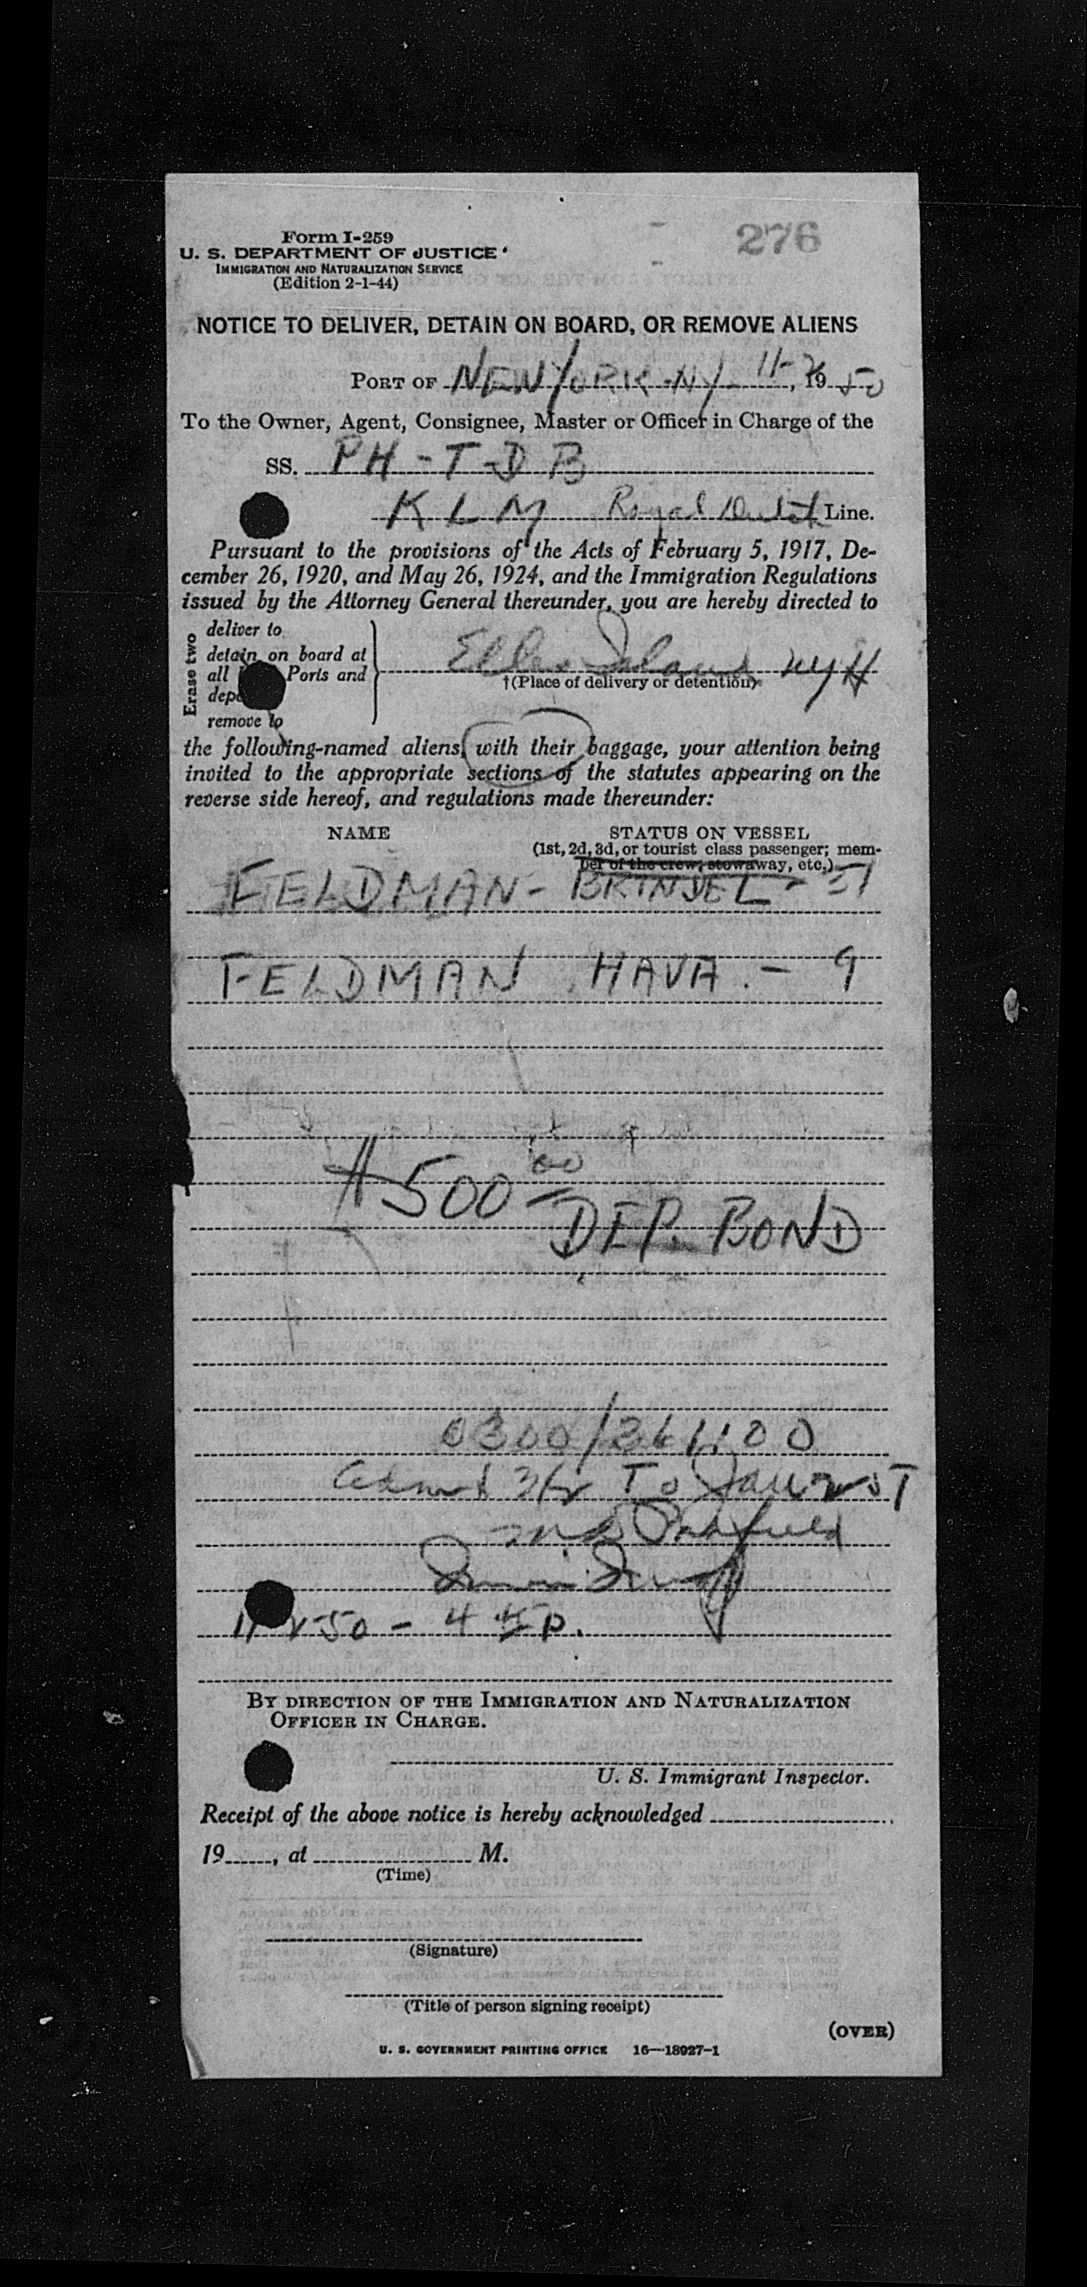 276
Form I-259
U. S. DEPARTMENT OF JUSTICE
IMMIGRATION AND NATURALIZATION SERVICE
(Edition 2-1-44)
NOTICE TO DELIVER, DETAIN ON BOARD, OR REMOVE ALIENS
PORT OF NEW YORK NY 11-2, 1950
To the Owner, Agent, Consignee, Master or Officer in Charge of the
SS. PH-TDB
KLM Royal Dutch Line.
Pursuant to the provisions of the Acts of February 5, 1917, De-
cember 26, 1920, and May 26, 1924, and the Immigration Regulations
issued by the Attorney General thereunder, you are hereby directed to
Erase two
deliver to
detain on board at
all Ports and
remove to
Ellis Island NYH
†(Place of delivery or detention)
the following-named aliens, with their baggage, your attention being
invited to the appropriate sections of the statutes appearing on the
reverse side hereof, and regulations made thereunder:
NAME STATUS ON VESSEL
(1st, 2d, 3d, or tourist class passenger; mem-
ber of the crew; stowaway, etc.)
FELDMAN - BRINDEL -
FELDMAN HAVA. - 9
$500 00
DEP. BOND
0300/
To
11 2 50 - 4 45 p.
BY DIRECTION OF THE IMMIGRATION AND NATURALIZATION
OFFICER IN CHARGE.
U. S. Immigrant Inspector.
Receipt of the above notice is hereby acknowledged
19, at M.
(Time)
(Signature)
(Title of person signing receipt)
(OVER)
U. S. GOVERNMENT PRINTING OFFICE 16—18927-1